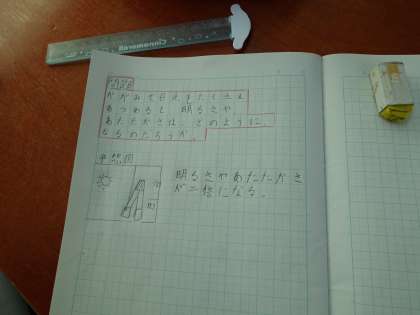 Cinnamoroll
問題
かがみで日光をたくさん
あつめると、明るさや
あたたかさは、どのように、
なるのだろうか。
予想図
明るさやあたたかさ
が二倍になる。